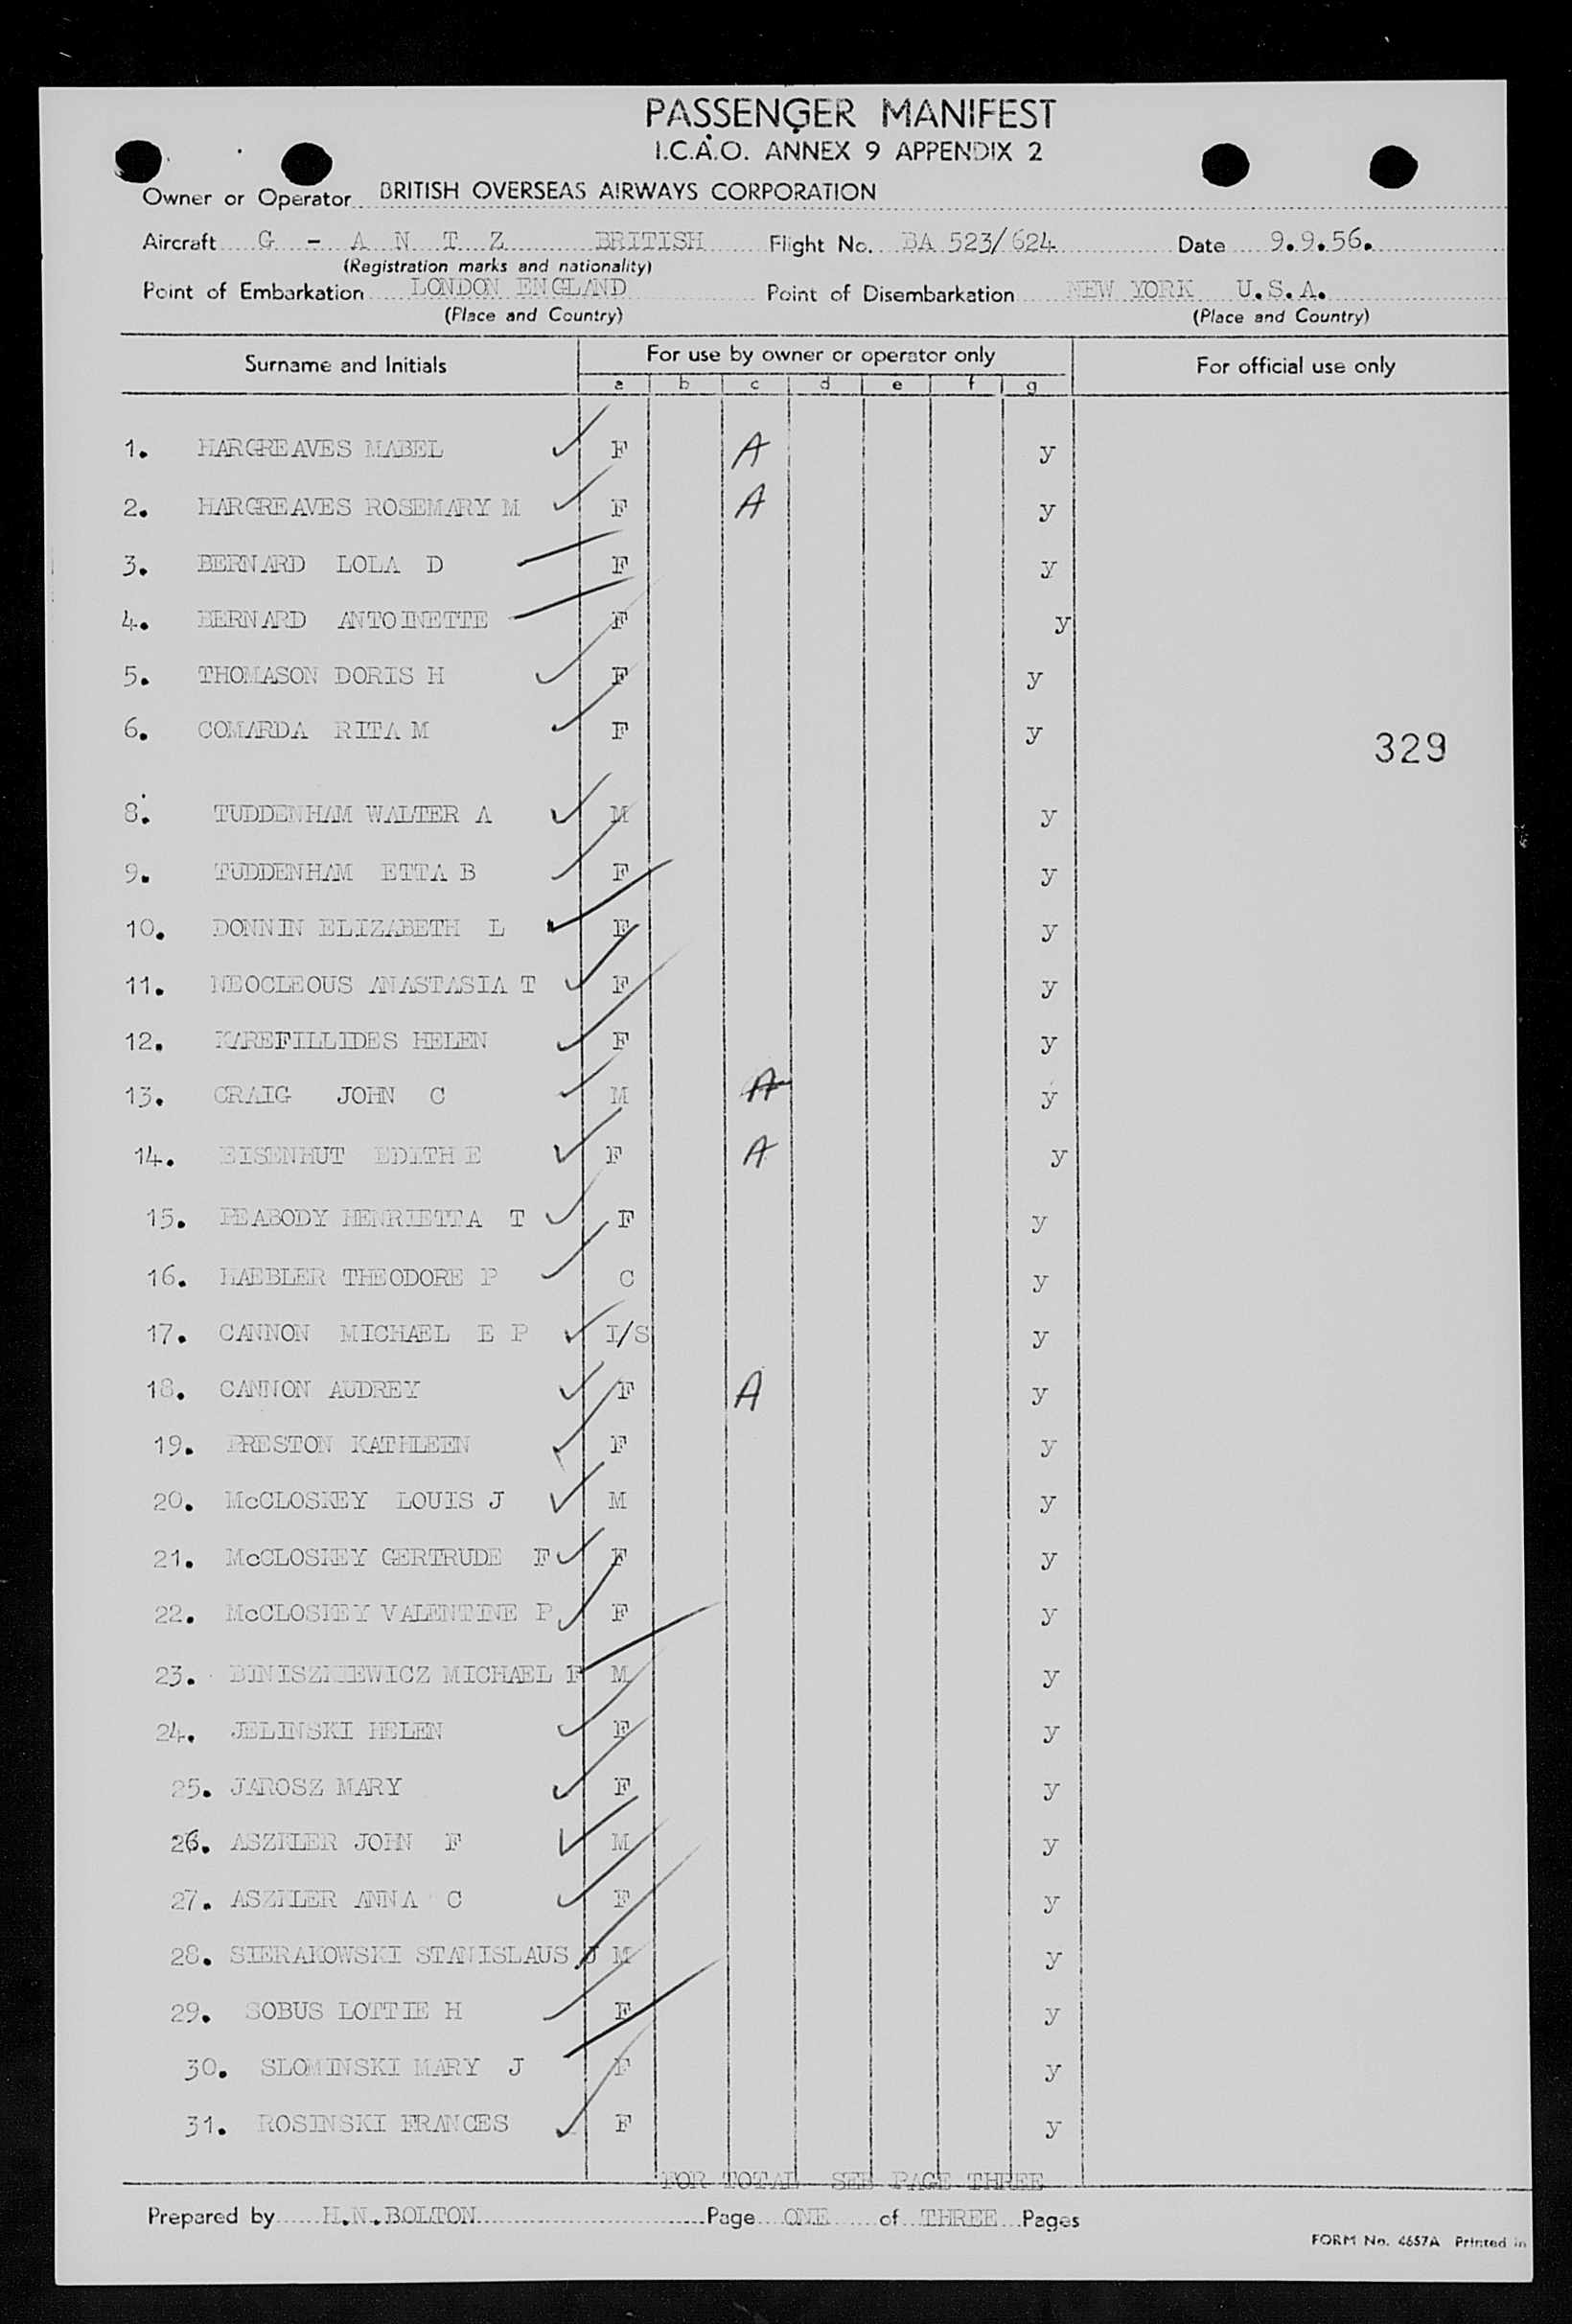 PASSENGER MANIFEST
I.C.A.O. ANNEX 9 APPENDIX 2
Owner or Operator BRITISH OVERSEAS AIRWAYS CORPORATION
Aircraft G - A N T Z BRITISH Flight No. BA 523/624 Date 9.9.56.
(Registration marks and nationality)
Point of Embarkation LONDON ENGLAND Point of Disembarkation NEW YORK U.S.A.
(Place and Country) (Place and Country)
Surname and Initials For use by owner or operator only For official use only
a b c d e f g
1. HARGREAVES MABEL F A y
2. HARGREAVES ROSEMARY M F A y
3. BERNARD LOLA D F y
4. BERNARD ANTOINETTE F y
5. THOMASON DORIS H F y
6. COMARDA RITA M F y
329
8. TUDDENHAM WALTER A M y
9. TUDDENHAM ETTA B F y
10. DONNIN ELIZABETH L F y
11. NEOCLEOUS ANASTASIA T F y
12. KAREFILLIDES HELEN F y
13. CRAIG JOHN C M A y
14. EISENHUT EDITH E F A y
15. PEABODY HENRIETTA T F y
16. HAEBLER THEODORE P C y
17. CANNON MICHAEL E P I/S y
18. CANNON AUDREY F A y
19. PRESTON KATHLEEN F y
20. McCLOSKEY LOUIS J M y
21. McCLOSKEY GERTRUDE F F y
22. McCLOSKEY VALENTINE P F y
23. BINISZKIEWICZ MICHAEL F M y
24. JELINSKI HELEN F y
25. JAROSZ MARY F y
26. ASZKLER JOHN F M y
27. ASZKLER ANNA C F y
28. SIERAKOWSKI STANISLAUS J M y
29. SOBUS LOTTIE H F y
30. SLOMINSKI MARY J F y
31. ROSINSKI FRANCES F y
FOR TOTAL SEE PAGE THREE
Prepared by H.N.BOLTON Page ONE of THREE Pages
FORM No. 4657A Printed in